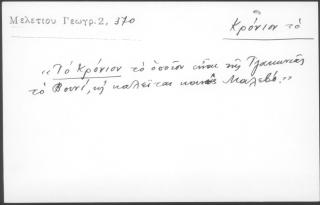 Μελετίου Γεωγρ. 2, 370
Κρόνιον τὸ
"Τὸ Κρόνιον τὸ ὁποῖον εἶναι τῆς Τζακωνιάς
τὸ Βουνί, κὴ καλεῖται κοινῶς Μαλεβό."